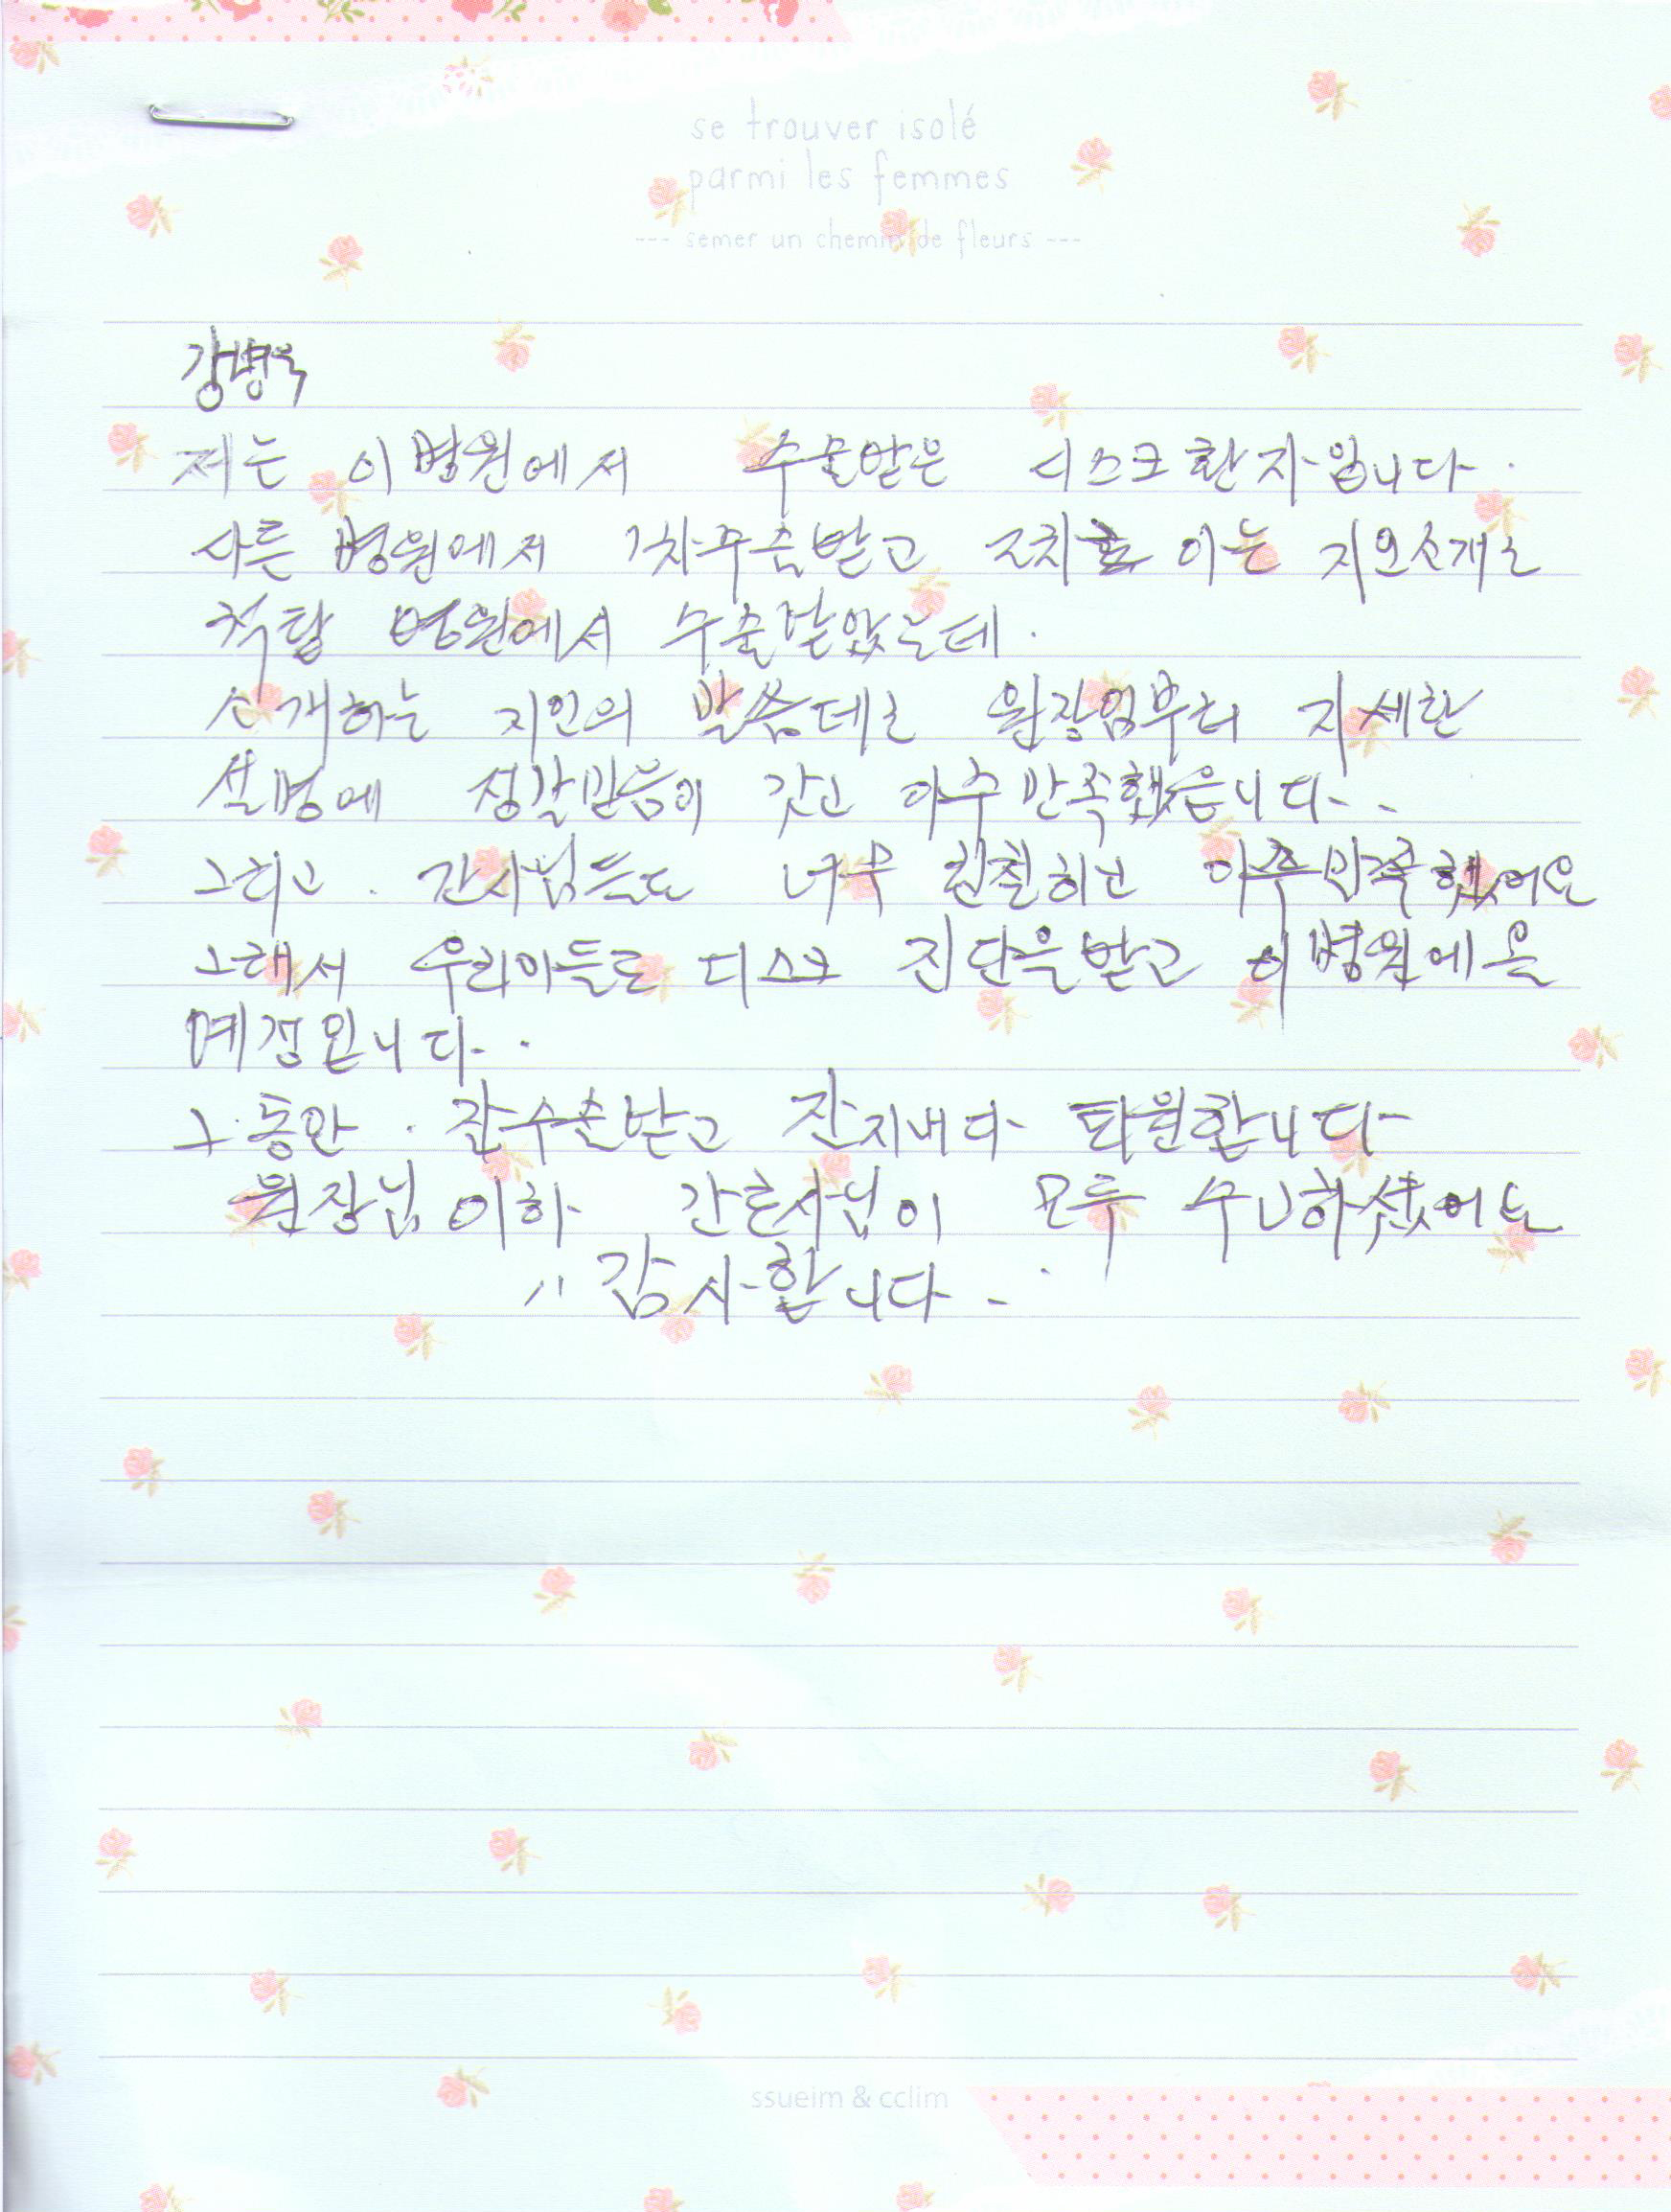 se trouver isolé
parmi les femmes
--- semer un chemin de fleurs ---
강병욱
저는 이병원에서 수술받은 디스크환자입니다.
다른 병원에서 1차수술받고 2차 아는 지인소개로
척탑 병원에서 수술받았는데.
소개하는 지인의 말씀데로 원장님부터 자세한
설명에 정말믿음이 갔고 아주만족했읍니다..
그리고. 간사님들도 너무 친절하고 아주만족했어요
그래서 우리아들도 디스크 진단을받고 이병원에올
예정입니다..
그동안. 잘수술받고 잘지내다 퇴원합니다
원장님이하 간호사님이 모두 수고하셨어요
" 감사합니다..
ssueim & cclim